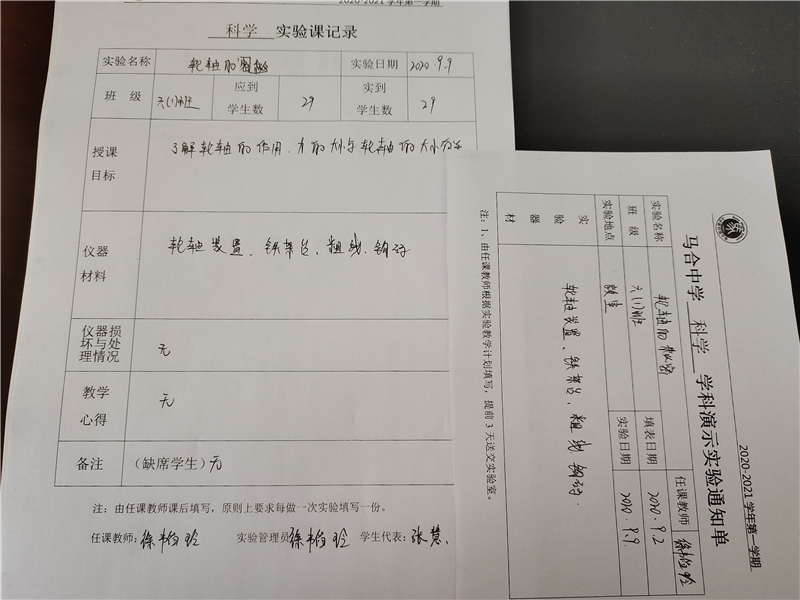 2020-2021 学年第一学期
科学 实验课记录
实验名称 轮轴的 实验日期 2020.9.9
班 级 六(1)班 应到学生数 29 实到学生数 29
授课目标 了解轮轴的作用.力的大小与轮轴的大小有关
仪器材料 轮轴装置、铁架台、粗线.钩码
仪器损坏与处理情况 无
教学心得 无
备注 (缺席学生)无
注:由任课教师课后填写,原则上要求每做一次实验填写一份。
任课教师: 实验管理员 学生代表:张慧.
2020-2021 学年第一学期
马合中学 科学 学科演示实验通知单
任课教师
实验名称 轮轴的秘密 填表日期 2020.9.2
班 级 六(1)班 实验日期 2020.9.9.
实验地点 教室
实验器材 轮轴装置、铁架台、粗线 钩码.
注:1、由任课教师根据实验教学计划填写,提前 3 天送交实验室。